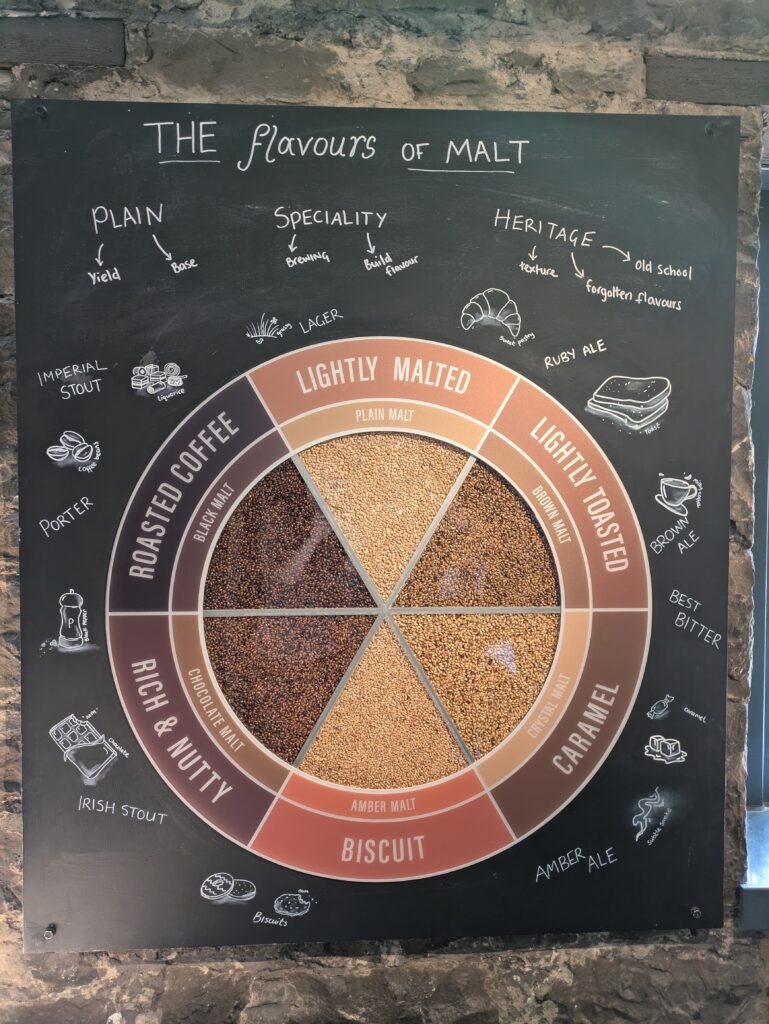 THE flavours OF MALT
PLAIN
Yield
Base
SPECIALITY
Brewing
Build
flavour
HERITAGE
texture
forgotten flavours
old school
LAGER
grassy
sweet pastry
RUBY ALE
Toast
BROWN
ALE
BEST
BITTER
caramel
subtle smoke
AMBER ALE
Biscuits
IRISH STOUT
chocolate
Black Pepper
P
PORTER
coffee beans
IMPERIAL
STOUT
Liquorice
LIGHTLY MALTED
PLAIN MALT
LIGHTLY TOASTED
BROWN MALT
CARAMEL
CRYSTAL MALT
BISCUIT
AMBER MALT
RICH & NUTTY
CHOCOLATE MALT
ROASTED COFFEE
BLACK MALT